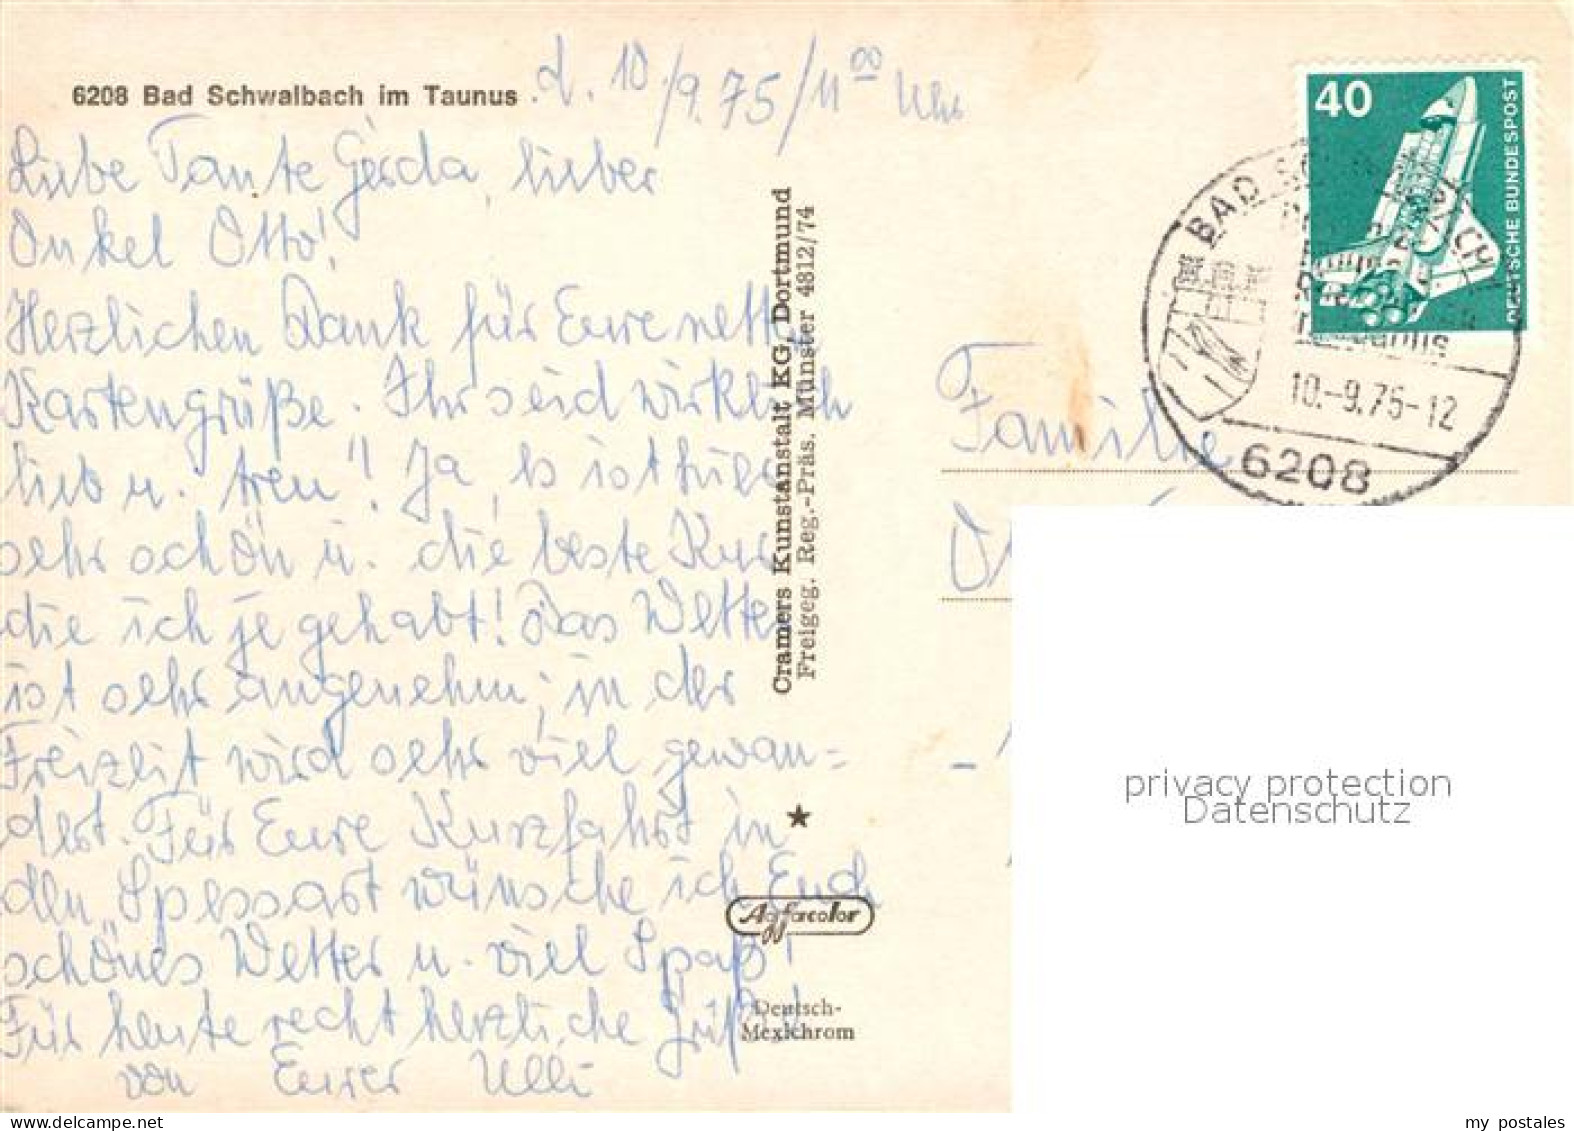 6208 Bad Schwalbach im Taunus
d. 10./9.75/11⁰⁰ Uhr
Liebe Tante Gerda, lieber
Onkel Otto!
Herzlichen Dank für Eure nette
Kartengrüße. Ihr seid wirklich
lieb u. treu! Ja, es ist hier
sehr schön u. die beste Kur
die ich je gehabt! Das Wetter
ist sehr angenehm; in der
Freizeit wird sehr viel gewan=
dert. Für Eure Kurzfahrt in
den Spessart wünsche ich Euch
schönes Wetter u. viel Spaß!
Für heute recht herzliche Grüße!
von Eurer Ulli
Cramers Kunstanstalt KG, Dortmund
Freigeg. Reg.-Präs. Münster 4812/74
Agfacolor
Deutsch-
Mexichrom
40
DEUTSCHE BUNDESPOST
BAD
10.-9.75-12
6208
Familie
privacy protection
Datenschutz
my postales